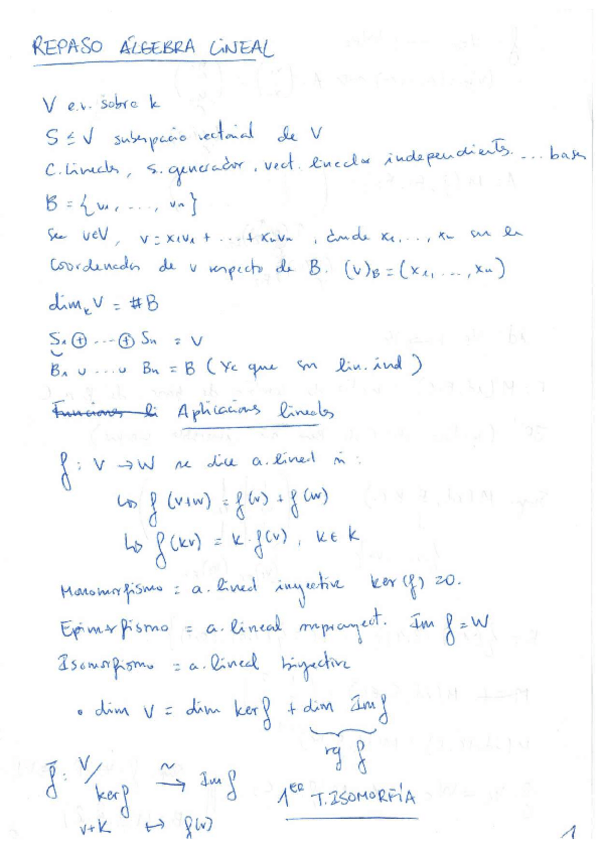 REPASO ÁLGEBRA LINEAL
V e.v. sobre k
S ≤ V subespacio vectorial de V
C. lineales, s. generador, vect. lineales independients. ... bases
B = {v₁, ..., vₙ}
Sea v∈V, v = x₁v₁ + ... + xₙvₙ, donde x₁, ..., xₙ son las
coordenadas de v respecto de B. (v)_B = (x₁, ..., xₙ)
dimₖ V = #B
S₁ ⊕ ... ⊕ Sₙ = V
B₁ ∪ ... ∪ Bₙ = B (ya que son lin. ind)
Funciones li Aplicacions lineales
f: V → W se dice a. lineal si:
↳ f(v+w) = f(v) + f(w)
↳ f(kv) = k · f(v), k ∈ k
Monomorfismo = a. lineal inyectiva ker(f) = 0.
Epimorfismo = a. lineal suprayect. Im f = W
Isomorfismo = a. lineal biyectiva
• dim V = dim ker f + dim Im f
rg f
f̄: V/ker f ⥲ Im f 1ᵉʳ T. ISOMORFÍA
v+K ↦ f(v)
1